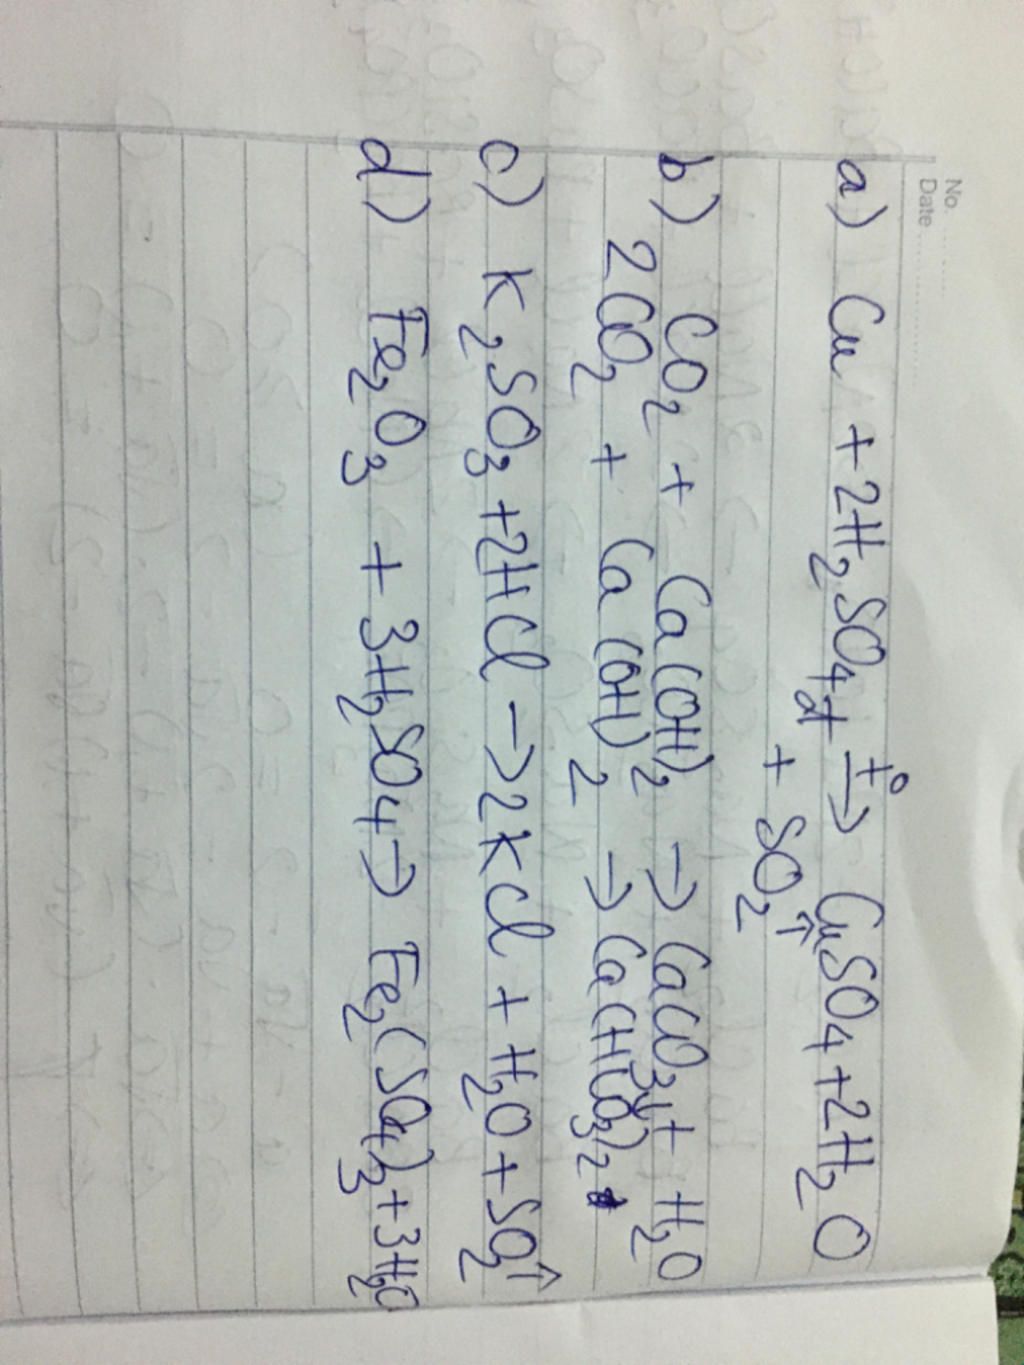 No.
Date
a) Cu + 2H₂SO₄đ t°→ CuSO₄ + 2H₂O
+ SO₂↑
b) CO₂ + Ca(OH)₂ → CaCO₃↓ + H₂O
2CO₂ + Ca(OH)₂ → Ca(HCO₃)₂
c) K₂SO₃ + 2HCl → 2KCl + H₂O + SO₂↑
d) Fe₂O₃ + 3H₂SO₄ → Fe₂(SO₄)₃ + 3H₂O